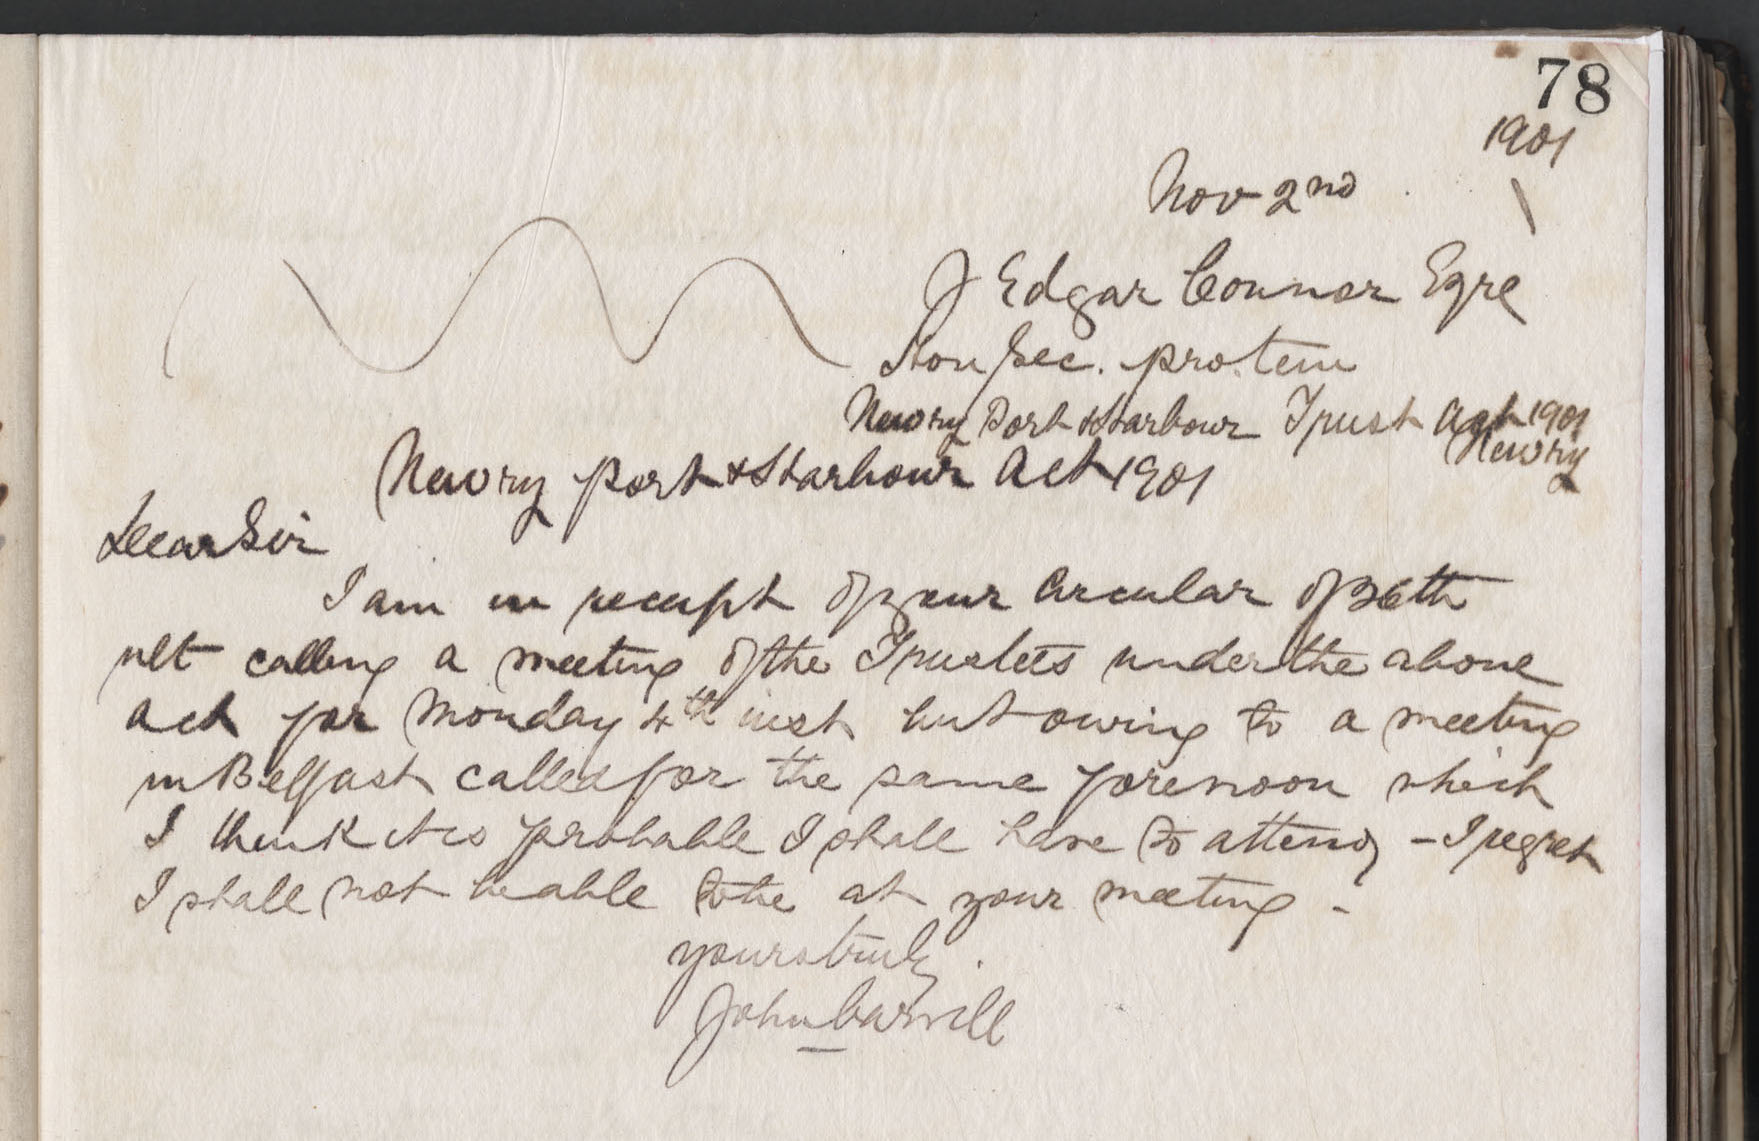 78
1901
Nov 2nd
J Edgar Connor Esqre
Hon Sec. pro. tem
Newry Port & Harbour Trust Act 1901
Newry
Newry Port & Harbour Act 1901
Dear Sir
I am in receipt of your circular of
ult calling a meeting of the Trustees under the above
Act for Monday 4th inst but owing to a meeting
in Belfast called for the same forenoon which
I think it is probable I shall have to attend - I regret
I shall not be able to be at your meeting -
yours truly.
John Carvill